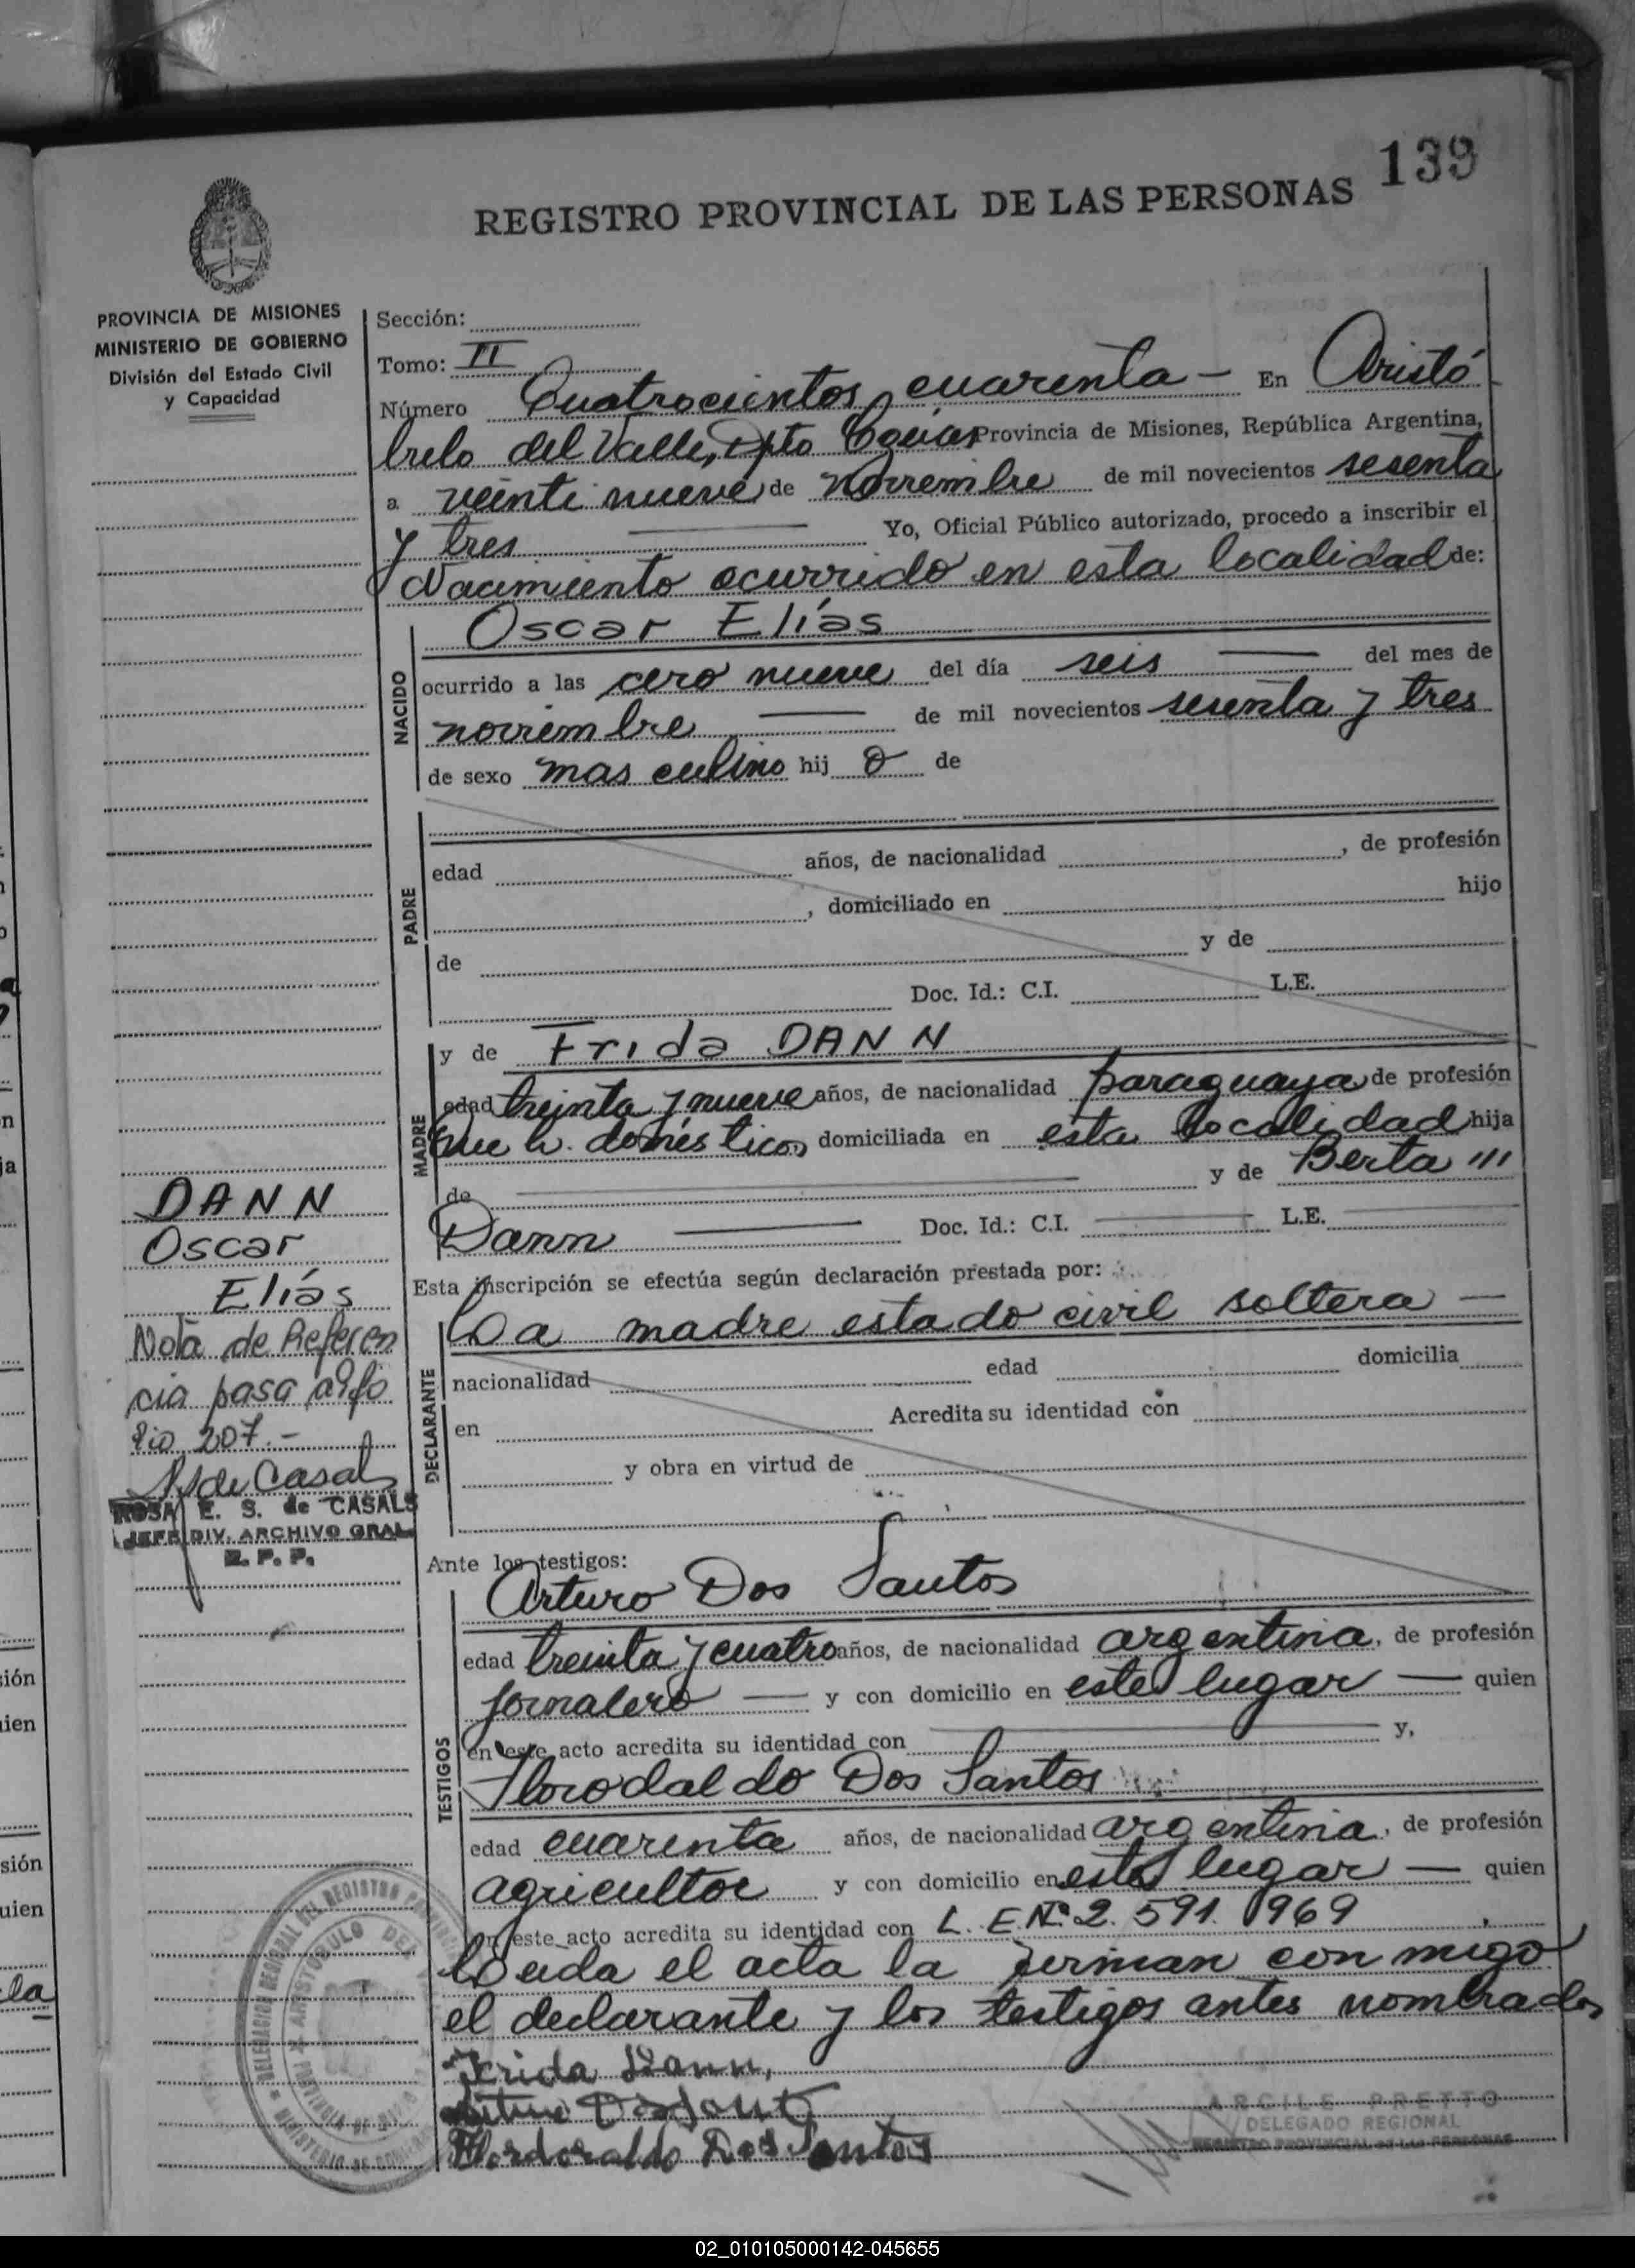 139
REGISTRO PROVINCIAL DE LAS PERSONAS
PROVINCIA DE MISIONES
MINISTERIO DE GOBIERNO
División del Estado Civil
y Capacidad
Sección:
Tomo: II
Número Cuatrocientos cuarenta - En Aristó
bulo del Valle, Dpto Cguás Provincia de Misiones, República Argentina,
a veinti nueve de Noviembre de mil novecientos sesenta
y tres Yo, Oficial Público autorizado, procedo a inscribir el
Nacimiento ocurrido en esta localidad de:
NACIDO
Oscar Elías
ocurrido a las cero nueve del día seis del mes de
noviembre de mil novecientos sesenta y tres
de sexo masculino hij o de
PADRE
edad años, de nacionalidad , de profesión
, domiciliado en hijo
de y de
Doc. Id.: C.I. L.E.
MADRE
y de Frida DANN
edad treinta y nueve años, de nacionalidad paraguaya de profesión
Que h. domésticos domiciliada en esta localidad hija
de y de Berta ///
Dann Doc. Id.: C.I. L.E.
DANN
Oscar
Elías
Nota de Referen
cia pasa al fo
lio 207.-
ROSA E. S. de CASALS
JEFE DIV. ARCHIVO GRAL.
R. P. P.
Esta inscripción se efectúa según declaración prestada por:
DECLARANTE
La madre estado civil soltera —
nacionalidad edad domicilia
en Acredita su identidad con
y obra en virtud de
Ante los testigos:
TESTIGOS
Arturo Dos Santos
edad treinta y cuatro años, de nacionalidad argentina, de profesión
jornalero — y con domicilio en este lugar — quien
en este acto acredita su identidad con y,
Florodaldo Dos Santos
edad cuarenta años, de nacionalidad argentina, de profesión
agricultor y con domicilio en este lugar — quien
en este acto acredita su identidad con L. E. Nº 2.591.969
Leida el acta la firman con migo
el declarante y los testigos antes nombrados
Frida Dann,
Arturo Dos Sant
Flordoraldo Dos Santos
ARGILE PRETTO
DELEGADO REGIONAL
REGISTRO PROVINCIAL DE LAS PERSONAS
02_010105000142-045655